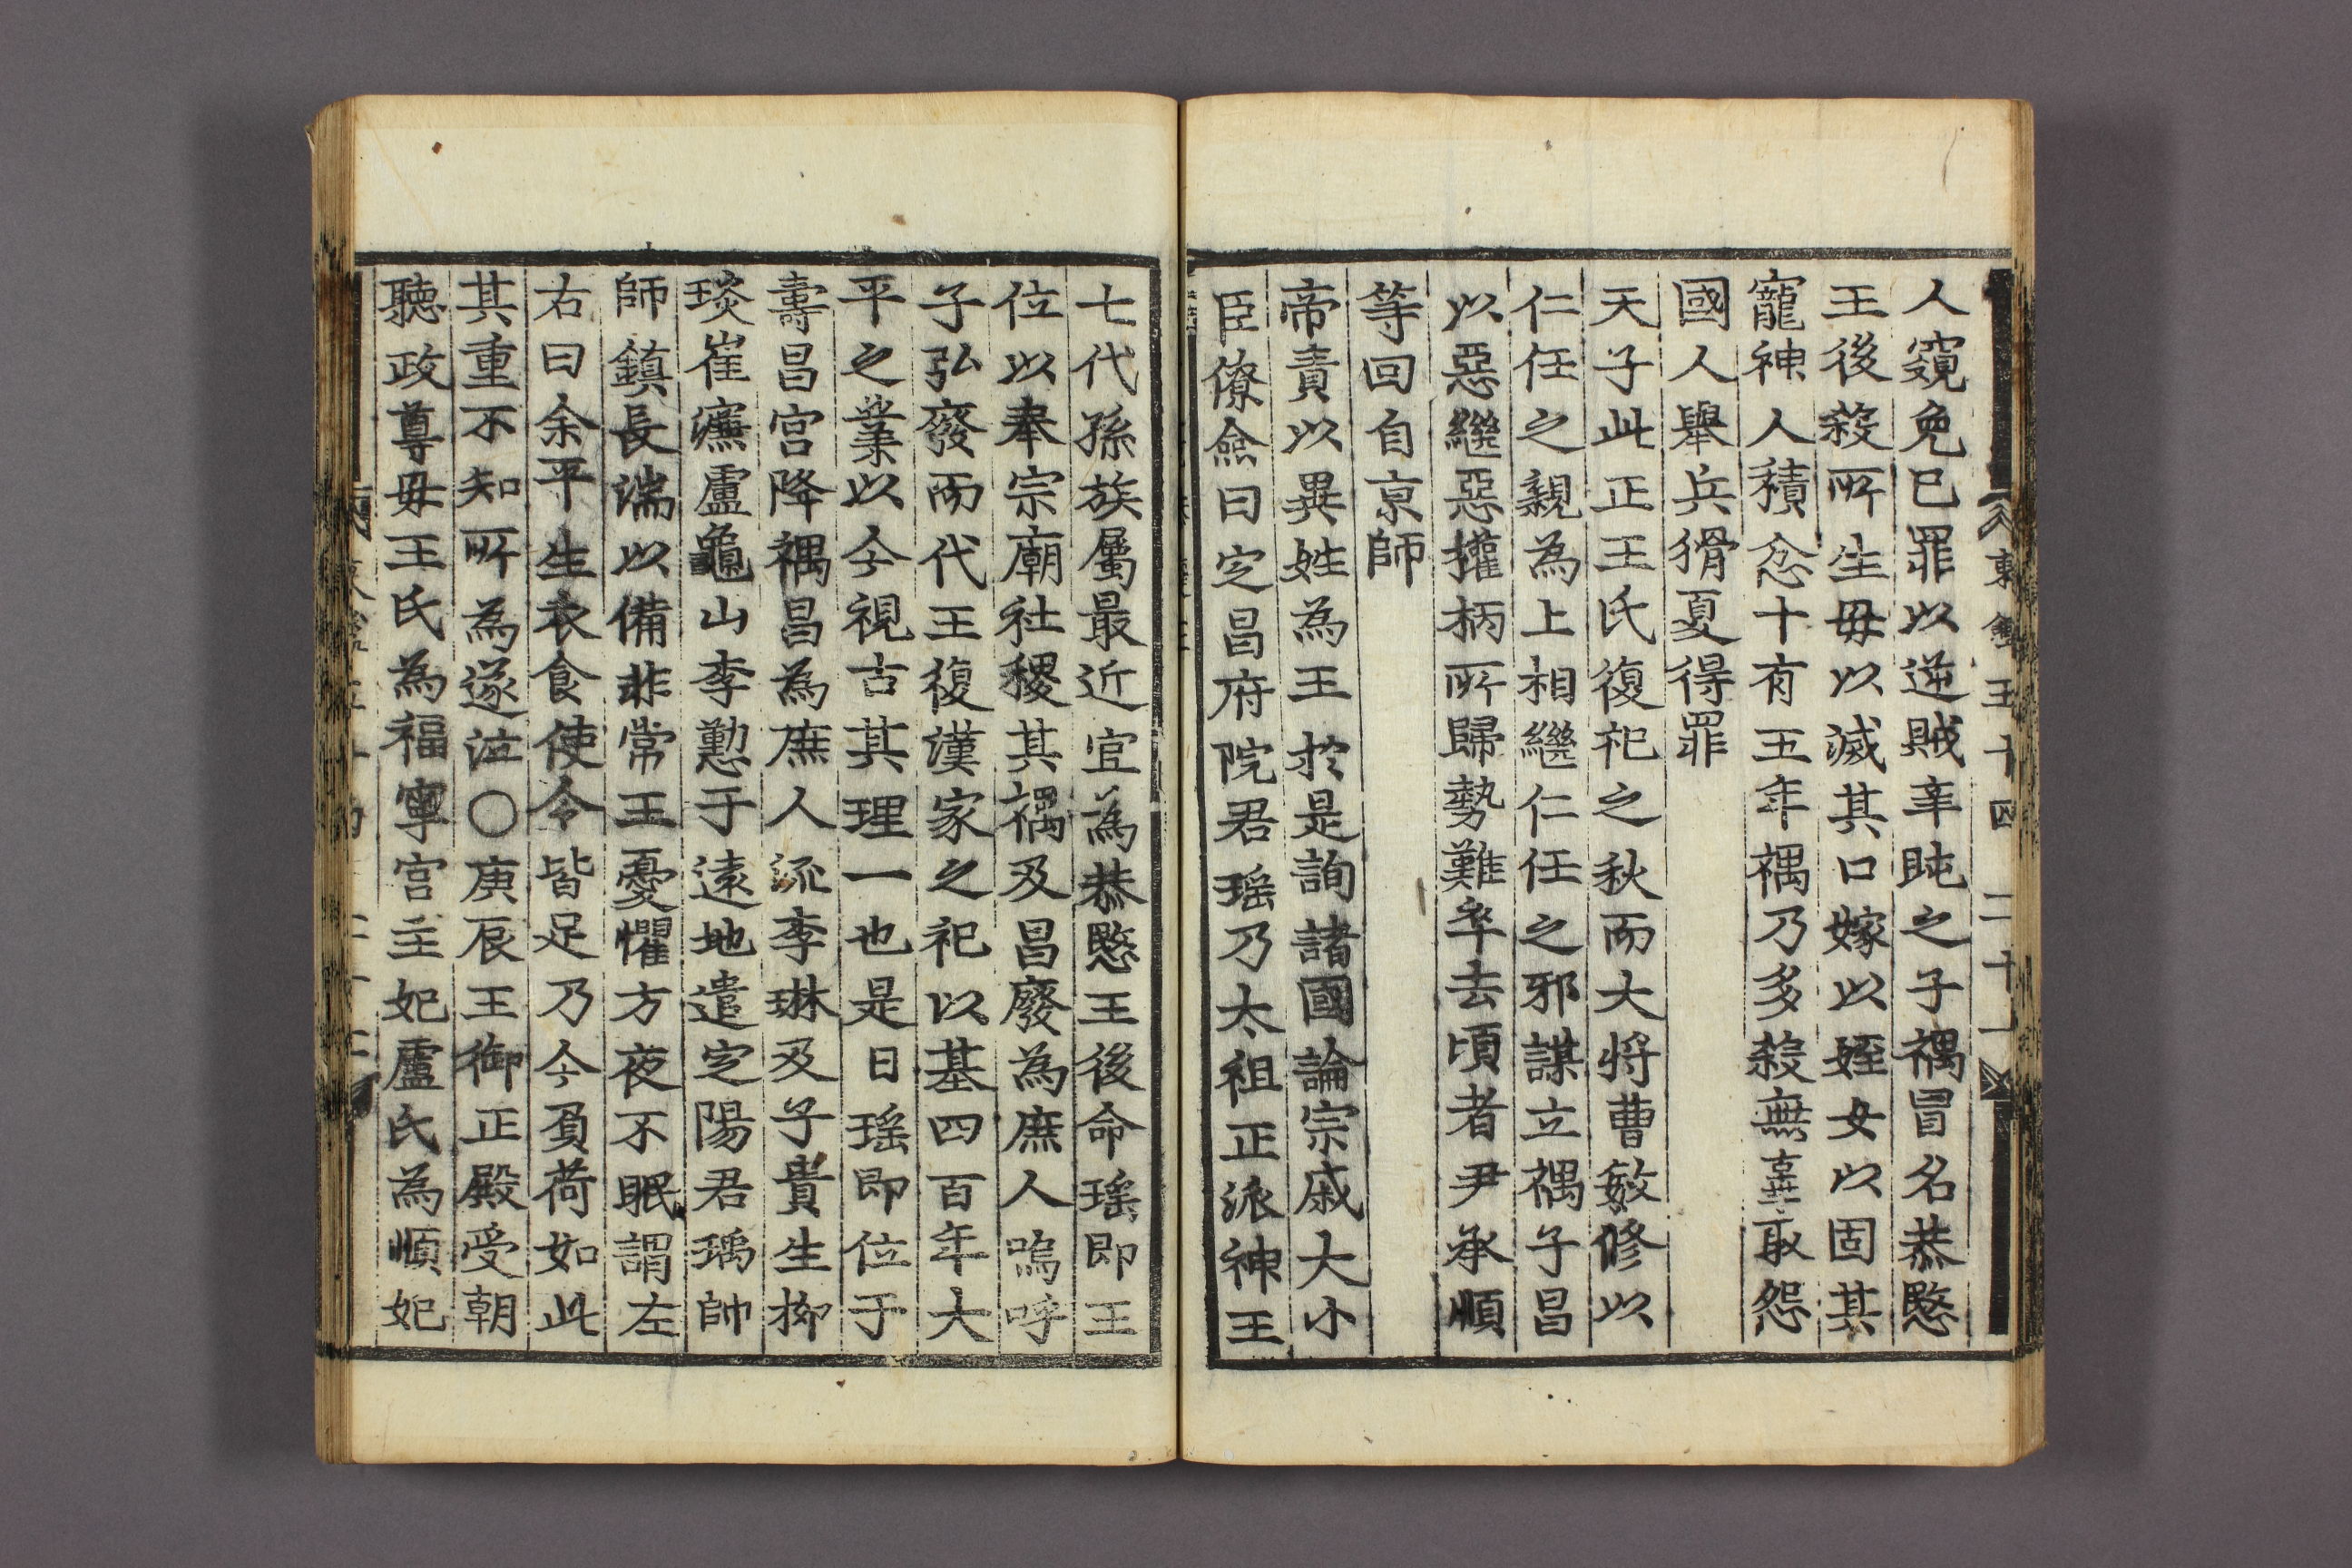 東鑑五十四 二十一
人窺免已罪以逆賊辛旽之子禑冒名恭愍
王後殺所生毋以滅其口嫁以姪女以固其
寵神人積忿十有五年禑乃多殺無辜取怨
國人舉兵猾夏得罪
天子此正王氏復祀之秋而大將曹敏修以
仁任之親為上相繼仁任之邪謀立禑子昌
以惡繼惡權柄所歸勢難卒去頃者尹承順
等回自京師
帝責以異姓為王於是詢諸國論宗戚大小
臣僚僉曰定昌府院君瑶乃太祖正派神王
七代孫族屬最近宜為恭愍王後命瑶即王
位以奉宗廟社稷其禑及昌廢為庶人嗚呼
子弘廢而代王復漢家之祀以基四百年大
平之業以今視古其理一也是日瑶即位于
壽昌宮降禑昌為庶人流李琳及子貴生柳
琰崔濂盧龜山李懃于遠地遣定陽君瑀帥
師鎮長湍以備非常王憂懼方夜不眠謂左
右曰余平生衣食使令皆足乃今負荷如此
其重不知所為遂泣〇庚辰王御正殿受朝
聽政尊毋王氏為福寧宮主妃盧氏為順妃